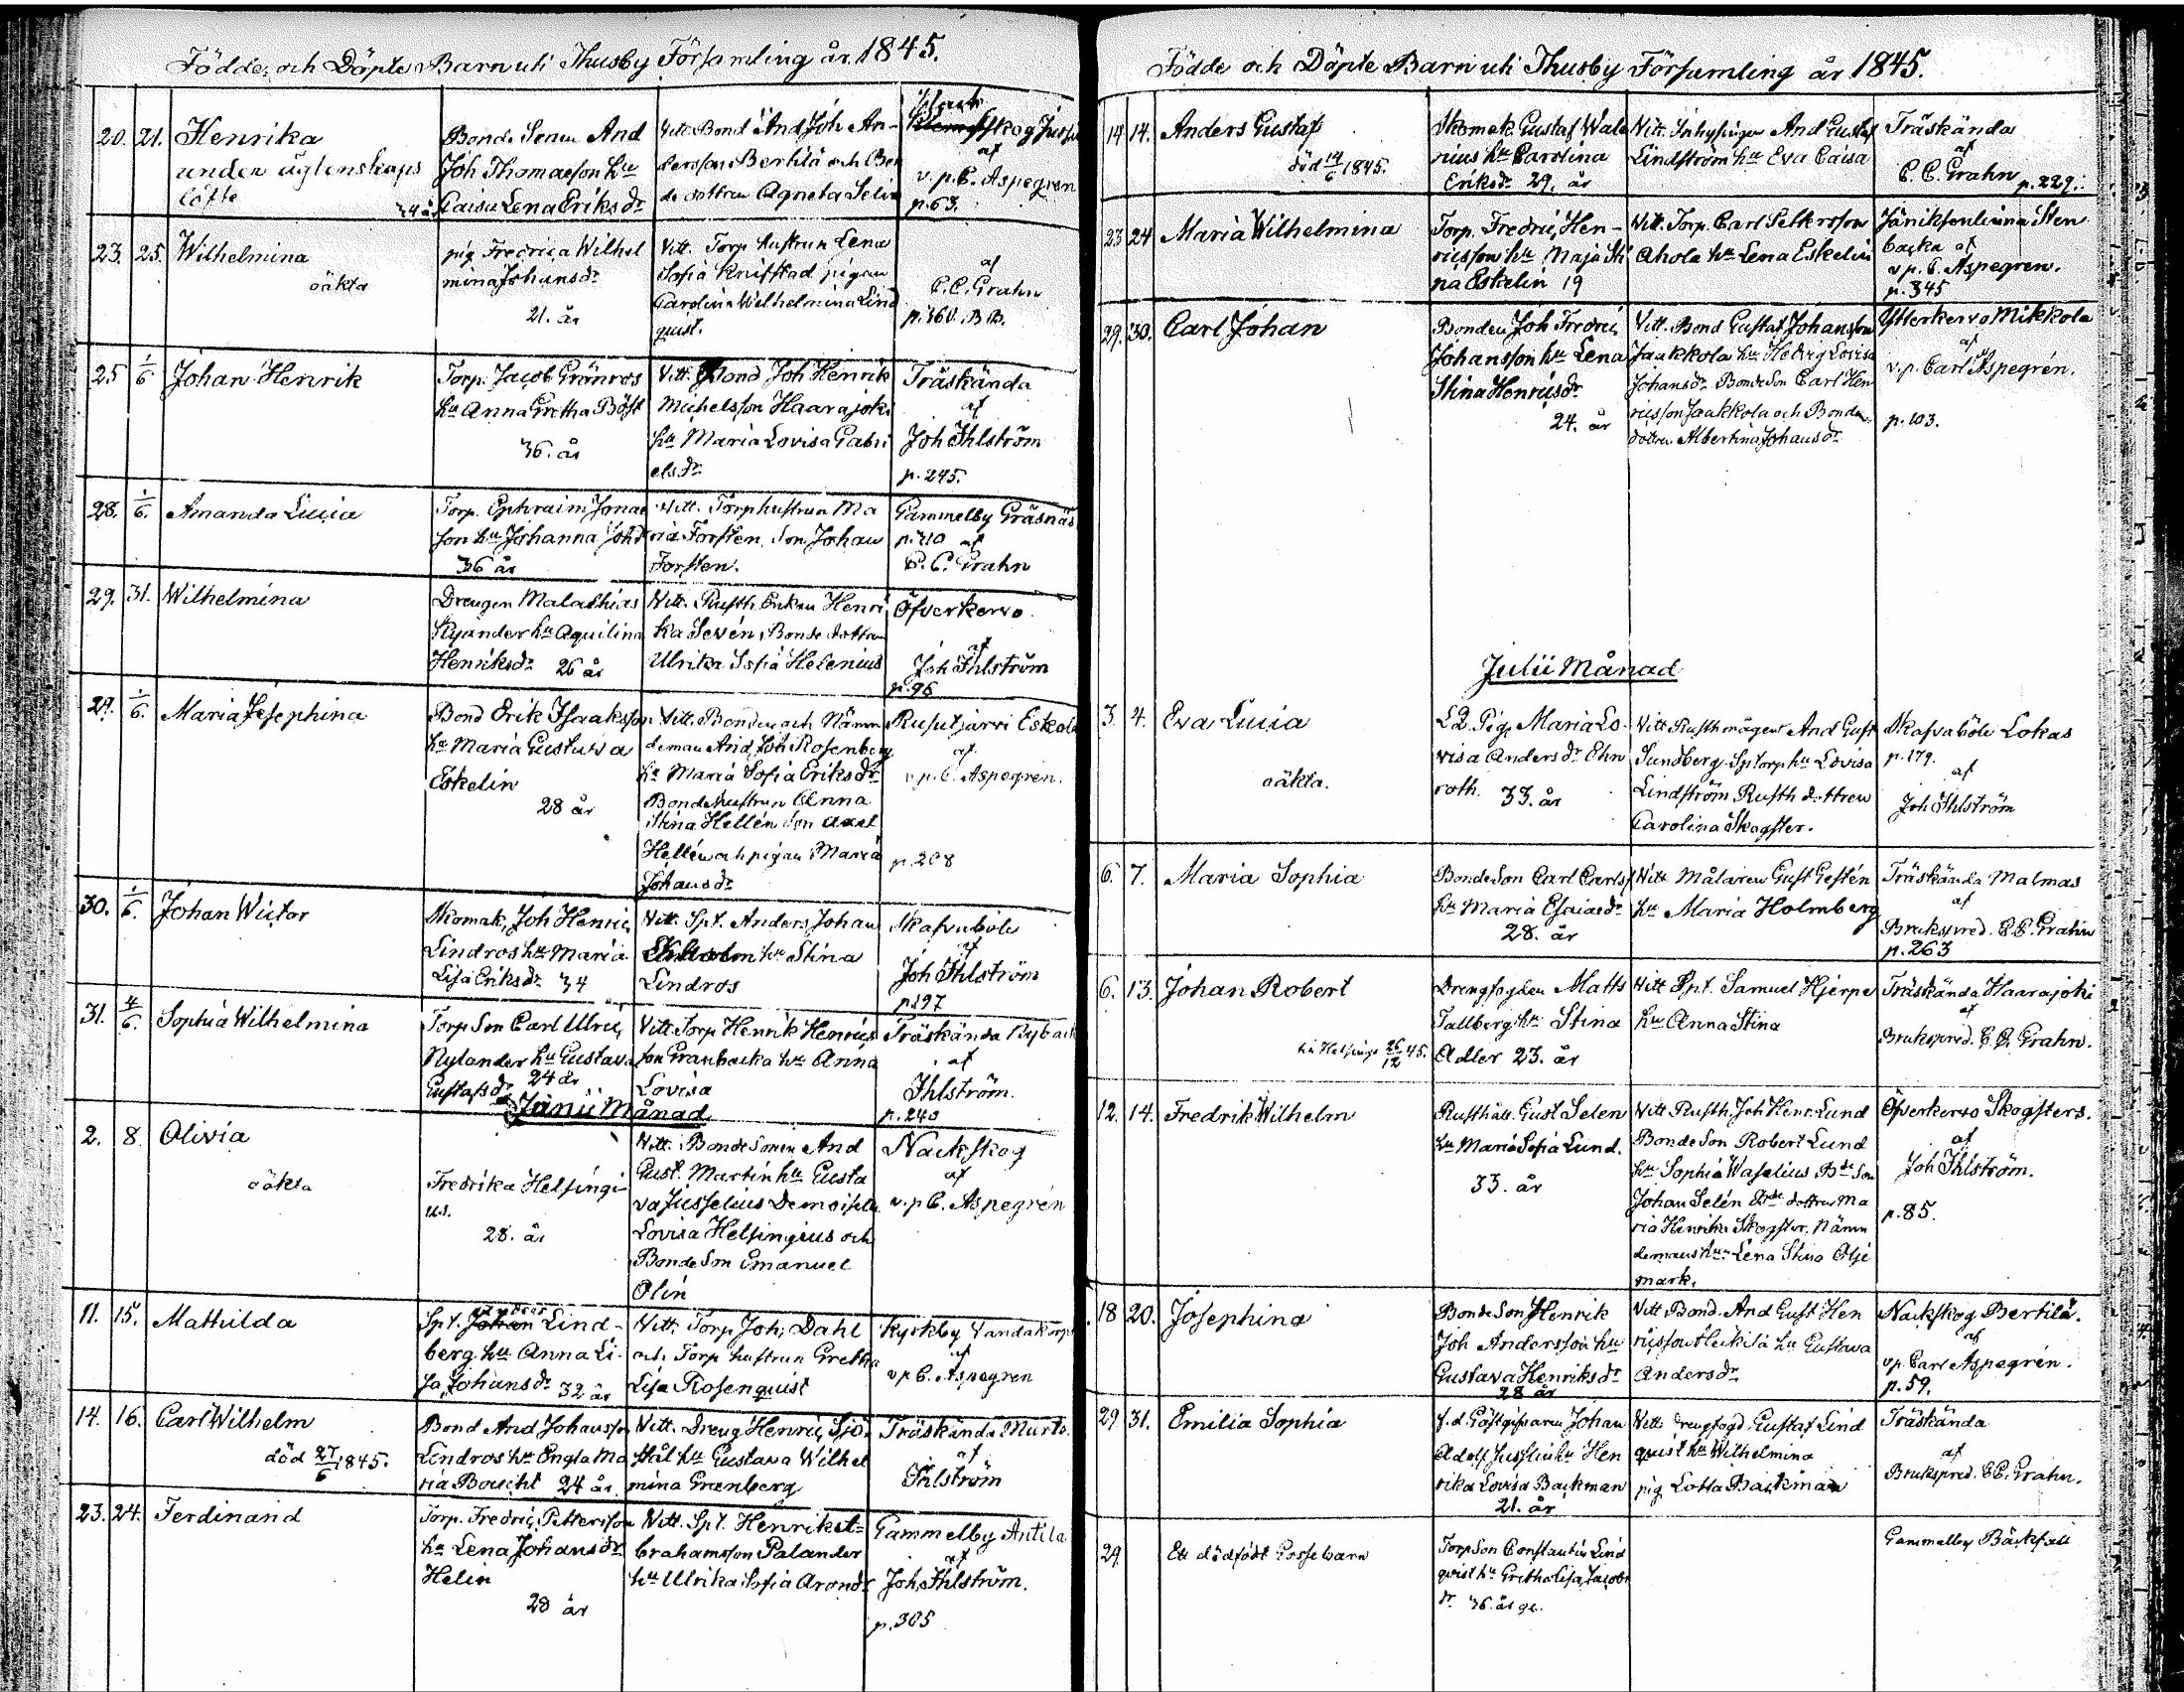 Födde och Döpte Barn uti Thusby Församling år 1845.
20. 21. Henrika
under äglenskaps
löfte
Bonde Sonen And
Joh Thomasson hu
Caisa Lena Eriks dr
24 år
Vitt. Bond And Joh An-
dersson Bertilä och Bon
de dottren Agneta Selin
skog
af
v. p. C. Aspegren
p. 63.
23. 25. Wilhelmina
oäkta
pig Fredrica Wilhel
mina Johans dr
21. år
Vitt. Torp hustrun Lena
Sofia Knifstad pigan
Carolina Wilhelmina Lind
quist.
af
C. C. Grahn
25 1/6 Johan Henrik
Torp. Jacob Grönros
hu Anna Gretha Böst
36. år
Vitt. Bond Joh Henrik
Michelsson Haarajoki
hu Maria Lovisa Gabri
els dr
Träskända
af
Joh Ihlström
p. 245.
28. 1/6. Amanda Lucia
Torp. Ephraim Jonas
son hu Johanna Joh dr
36 år
Vitt. Torp hustrun Ma
ria Forsten, Son Johan
Forsten.
Gammelby Gräsnäs
af
C. C. Grahn
29. 31. Wilhelmina
Drengen Malachias
Kyander hu Aquilina
Henriks dr 26 år
Vitt. Rusth Enkan Henri
ka Sevén, Bonde dottren
Ulrika Sofia Helenius
Öfverkervo
af
Joh Ihlström
p. 96
29. 1/6. Maria Josephina
Bond Erik Isaaksson
hu Maria Gustava
Eskelin
28 år
Vitt. Bonden och Nämn
deman And Joh Rosenberg
hu Maria Sofia Eriks dr
Bonde hustrun Anna
Stina Hellén Son Axel
Hellén och pigan Maria
Johans dr
Rusutjärvi Eskola
af
v. p. C. Aspegren.
p. 208
30. 1/6. Johan Wictor
Skomak. Joh Henric
Lindros hu Maria
Lisa Eriks dr 34
Vitt. Spt. Anders Johan
Ekholm hu Stina
Lindros
Skafvaböle
af
Joh Ihlström
p. 197
31. 4/6. Sophia Wilhelmina
Torp Son Carl Ulric
Nylander hu Gustava
Gustafs dr 24 år
Vitt. Torp Henrik Henrics
son Granbacka hu Anna
Lovisa
Träskända Rybac
af
Ihlström.
p. 240
Junii Månad
2. 8. Olivia
oäkta
Fredrika Helsingi
us.
28. år
Vitt. Bonde Sonen And
Gust. Martin hu Gusta
va Jusselius Demoiselle
Lovisa Helsingius och
Bonde Son Emanuel
Olin
Nackskog
af
v. p C. Aspegrén
11. 15. Mathilda
Anders
Spt. Johan Lind-
berg hu Anna Li-
sa Johans dr 32 år
Vitt. Torp Joh, Dahl
och Torp hustrun Gretha
Lisa Rosenquist
Kyrkby Vandakorp
af
v p C. Aspegren
14. 16. Carl Wilhelm
död 27/6 1845.
Bond And Johansson
Lindros hu Engla Ma
ria Boucht 24 år
Vitt. Dreng Henric Sjö
stål hu Gustava Wilhel
mina Granberg
Träskända Murto.
af
Ihlström
23. 24. Ferdinand
Torp. Fredric Pettersson
hu Lena Johans dr
Helin
28 år
Vitt. Spt. Henrik A-
brahamsson Palander
hu Ulrika Sofia Arons dr
Gammelby Antila
af
Joh, Ihlström.
p. 305
Födde och Döpte Barn uti Thusby Församling år 1845.
14 14. Anders Gustaf
död 14/6 1845.
Skomak Gustaf Wale
rius hu Carolina
Eriks dr 29. år
Vitt. Inhysingen And Gustaf
Lindström hu Eva Caisa
Träskända
af
C. C. Grahn p. 229.
23 24 Maria Wilhelmina
Torp. Fredric, Hen-
ricsson hu Maja Sti
na Eskelin 19
Vitt. Torp. Carl
Ahola hu Lena Eskelin
Sten
backa af
v p. C. Aspegren.
p. 345
29. 30. Carl Johan
Bonden Joh Fredric
Johansson hu Lena
Stina Henrics dr
24. år
Vitt. Bond Gustaf Johansson
Jaakkola hu Hedvig Lovisa
Johans dr Bonde Son Carl Hen
ricsson Jaakkola och Bonde
dottren Albertina Johans dr
Ytterkervo Mikkola
af
v. p. Carl Aspegrén.
p. 103.
Julii Månad
3. 4. Eva Lucia
oäkta.
L D. Pig. Maria Lo-
visa Anders dr Ehn
roth. 33. år
Vitt Rusth mågen And Gust
Sundberg. Sp torp hu Lovisa
Lindström Rusth dottren
Carolina Skogster.
Skafvaböle Lokas
p. 179.
af
Joh Ihlström
6. 7. Maria Sophia
Bonde Son Carl Carls
hu Maria Esaias dr
28. år
Vitt Målaren Gust Gestén
hu Maria Holmberg
Träskända Malmas
af
Brukspred. C C. Grahn
p. 263
6. 13. Johan Robert
26/12 45.
Drengfogden Matts
Tallberg hu Stina
Adler 23. år
Vitt Spt. Samuel Hjerpe
hu Anna Stina
Träskända Haarajoki
af
Brukspred. C C. Grahn.
12. 14. Fredrik Wilhelm
Rusthåll. Gust Selen
hu Maria Sofia Lund.
33. år
Vitt Rusth. Joh Henr. Lund
Bonde Son Robert Lund
hu Sophia Waselius Bde Son
Johan Selén Bde dottren Ma
ria Henrika Skogster, Nämn
demans hu Lena Stina Olje
mark.
Öfverkervo Skogsters.
af
Joh Ihlström.
p. 85.
18 20. Josephina
Bonde Son Henrik
Joh Andersson hu
Gustava Henriks dr
28 år
Vitt Bond. And Gust Hen
ricsson Heikilä hu Gustava
Anders dr
Nackskog Bertilä.
af
v p. Carl Aspegrén.
p. 59.
29. 31. Emilia Sophia
f. d. Gästgifvaren Johan
Adolf Juslin hu Hen
rika Lovisa Backman
21. år
Vitt. Drengfogd. Gustaf Lind
quist hu Wilhelmina
pig Lotta Backman
Träskända
af
Brukspred. C C. Grahn.
29. Ett dödfödt Gossebarn
Torp Son Constantin Lind
quist hu Gretha Lisa Jacobs
dr 36. år gl.
Gammelby Bäckfall